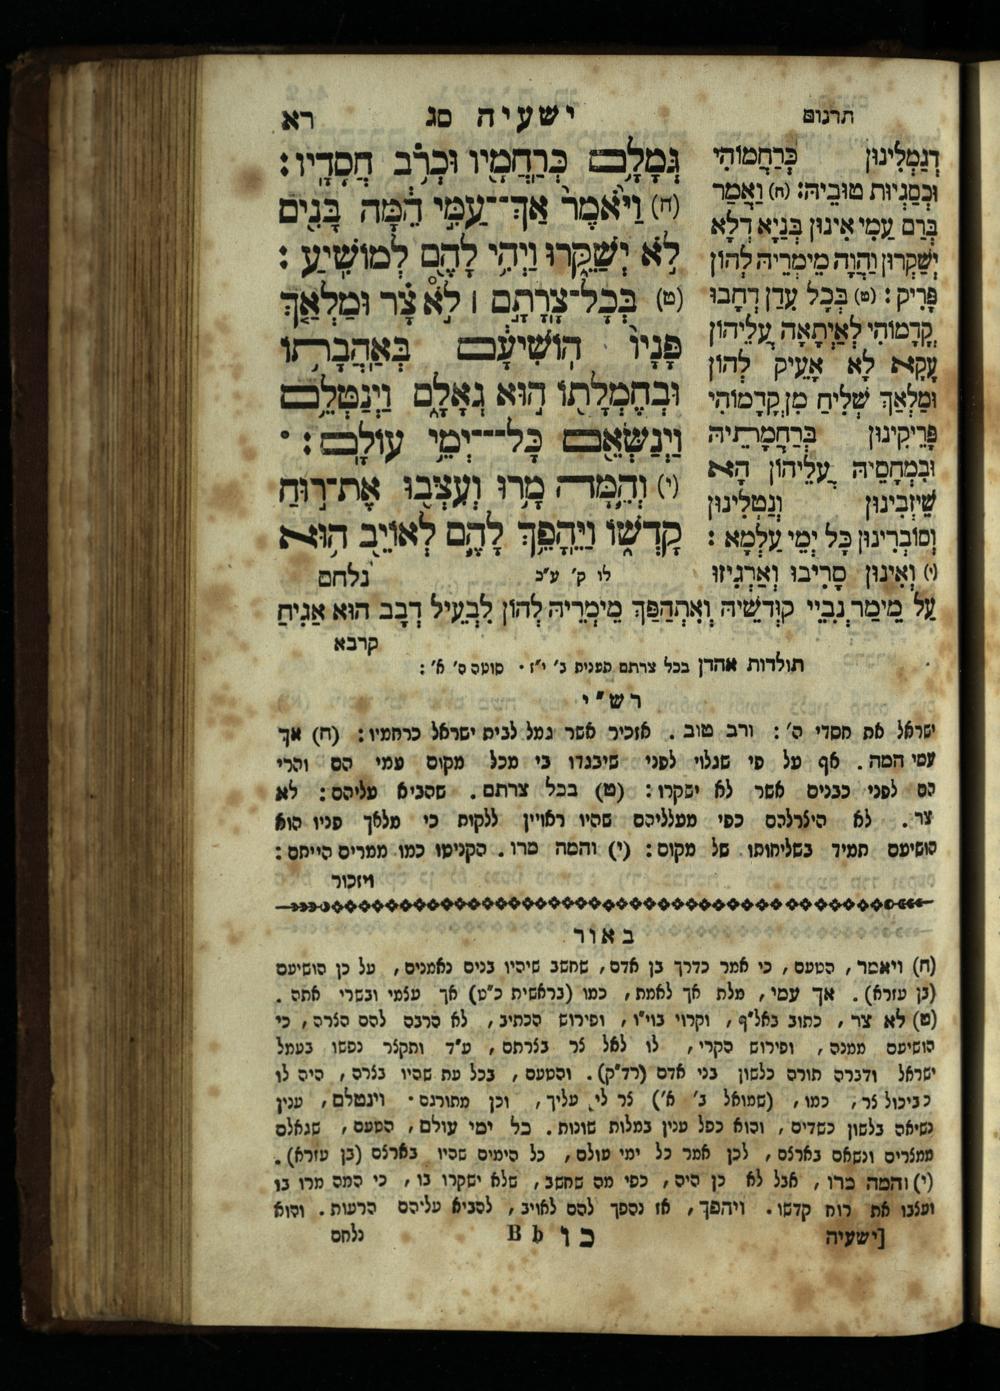 תרגום
ישעיה סג
רא
גְּמָלָ֥ם כְּֽרַחֲמָ֖יו וּכְרֹ֥ב חֲסָדָֽיו:
(ח) וַיֹּ֙אמֶר֙ אַךְ־עַמִּ֣י הֵ֔מָּה בָּנִ֖ים
לֹ֣א יְשַׁקֵּ֑רוּ וַיְהִ֥י לָהֶ֖ם לְמוֹשִֽׁיעַ:
(ט) בְּֽכָל־צָרָתָ֣ם ׀ לֹ֣א צָ֗ר וּמַלְאַ֤ךְ
פָּנָיו֙ הֽוֹשִׁיעָ֔ם בְּאַהֲבָת֥וֹ
וּבְחֶמְלָת֖וֹ ה֣וּא גְאָלָ֑ם וַֽיְנַטְּלֵ֥ם
וַֽיְנַשְּׂאֵ֖ם כָּל־יְמֵ֥י עוֹלָֽם:
(י) וְהֵ֛מָּה מָר֥וּ וְעִצְּב֖וּ אֶת־ר֣וּחַ
קָדְשׁ֑וֹ וַיֵּהָפֵ֥ךְ לָהֶ֛ם לְאוֹיֵ֖ב ה֥וּא
לו ק' ע"כ
נלחם
דְגַמְלִינוּן כְּרַחֲמוֹהִי
וּכְסַגְיוּת טוּבֵיהּ: (ח) וַאֲמַר
בְּרַם עַמִי אִינוּן בְּנַיָא דְלָא
יְשַׁקְרוּן וַהֲוָה מֵימְרֵיהּ לְהוֹן
פָּרִיק: (ט) בְּכָל עִדַן דְחָבוּ
קֳדָמוֹהִי לְאַיְתָאָה עֲלֵיהוֹן
עָקָא לָא אָעֵיק לְהוֹן
וּמַלְאַךְ שְׁלִיחַ מִן קֳדָמוֹהִי
פָּרֵיקִינוּן בְּרַחֲמָתֵיהּ
וּבִמְחָסֵיהּ עֲלֵיהוֹן הָא
שֵׁיזְבִינוּן וְנַטְלִינוּן
וְסוֹבְרִינוּן כָּל יְמֵי עַלְמָא:
(י) וְאִינוּן סָרִיבוּ וְאַרְגִיזוּ
עַל מֵימַר נְבִיֵי קוּדְשֵׁיהּ וְאִתְהַפַּךְ מֵימְרֵיהּ לְהוֹן לִבְעֵיל דְבָב הוּא אַגִיחַ
קרבא
תולדות אהרן בכל צרתם תענית ב' י"ז. סוטה ס' א':
רש"י
ישראל את חסדי ה': ורב טוב. אזכיר אשר גמל לבית ישראל ברחמיו: (ח) אך
עמי המה. אף על פי שגלוי לפני שיבגדו בי מכל מקום עמי הם והרי
הם לפני כבנים אשר לא ישקרו: (ט) בכל צרתם. שהביא עליהם: לא
צר. לא היצרלהם כפי מעלליהם שהיו ראויין ללקות כי מלאך פניו הוא
הושיעם תמיד בשליחותו של מקום: (י) והמה מרו. הקניטו כמו ממרים הייתם:
ויזכור
באור
(ח) ויאמר, הטעם, כי אמר כדרך בן אדם, שחשב שיהיו בנים נאמנים, על כן הושיעם
(בן עזרא). אך עמי, מלת אך לאמת, כמו (בראשית כ"ט) אך עצמי ובשרי אתה.
(ט) לא צר, כתוב באל"ף, וקרוי בוי"ו, ופירוש הכתיב, לא הרבה להם הצרה, כי
הושיעם ממנה, ופירוש הקרי, לו לאל צר בצרתם, ע"ד ותקצר נפשו בעמל
ישראל ודברה תורה כלשון בני אדם (רד"ק). והטעם, בכל עת שהיו בצרה, היה לו
כביכול צר, כמו, (שמואל ב' א') צר לי עליך, וכן מתורגם. וינטלם, ענין
נשיאה בלשון כשדים, והוא כפל ענין במלות שונות. כל ימי עולם, הטעם, שגאלם
ממצרים ונשאם בארצם, לכן אמר כל ימי עולם, כל הימים שהיו בארצם (בן עזרא).
(י) והמה מרו, אבל לא כן היה, כפי מה שחשב, שלא ישקרו בו, כי המה מרו בו
ועצבו את רוח קדשו. ויהפך, אז נהפך להם לאויב, להביא עליהם הרעות. והוא
[ישעיה
כו B b
נלחם